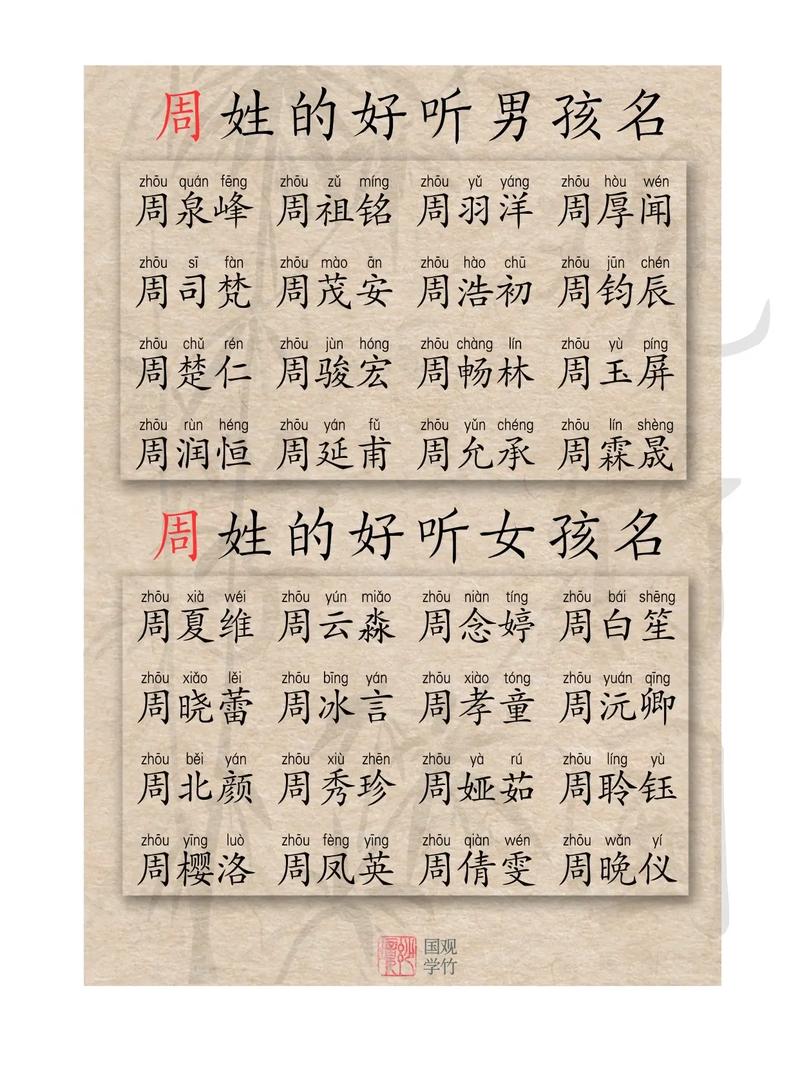 周姓的好听男孩名
zhōu quán fēng zhōu zǔ míng zhōu yǔ yáng zhōu hòu wén
周泉峰 周祖铭 周羽洋 周厚闻
zhōu sī fàn zhōu mào ān zhōu hào chū zhōu jūn chén
周司梵 周茂安 周浩初 周钧辰
zhōu chǔ rén zhōu jùn hóng zhōu chàng lín zhōu yù píng
周楚仁 周骏宏 周畅林 周玉屏
zhōu rùn héng zhōu yán fǔ zhōu yǔn chéng zhōu lín shèng
周润恒 周延甫 周允承 周霖晟
周姓的好听女孩名
zhōu xià wéi zhōu yún miǎo zhōu niàn tíng zhōu bái shēng
周夏维 周云淼 周念婷 周白笙
zhōu xiǎo lěi zhōu bīng yán zhōu xiào tóng zhōu yuán qīng
周晓蕾 周冰言 周孝童 周沅卿
zhōu běi yán zhōu xiù zhēn zhōu yà rú zhōu líng yù
周北颜 周秀珍 周娅茹 周聆钰
zhōu yīng luò zhōu fèng yīng zhōu qiàn wén zhōu wǎn yí
周樱洛 周凤英 周倩雯 周晚仪
观竹
国学